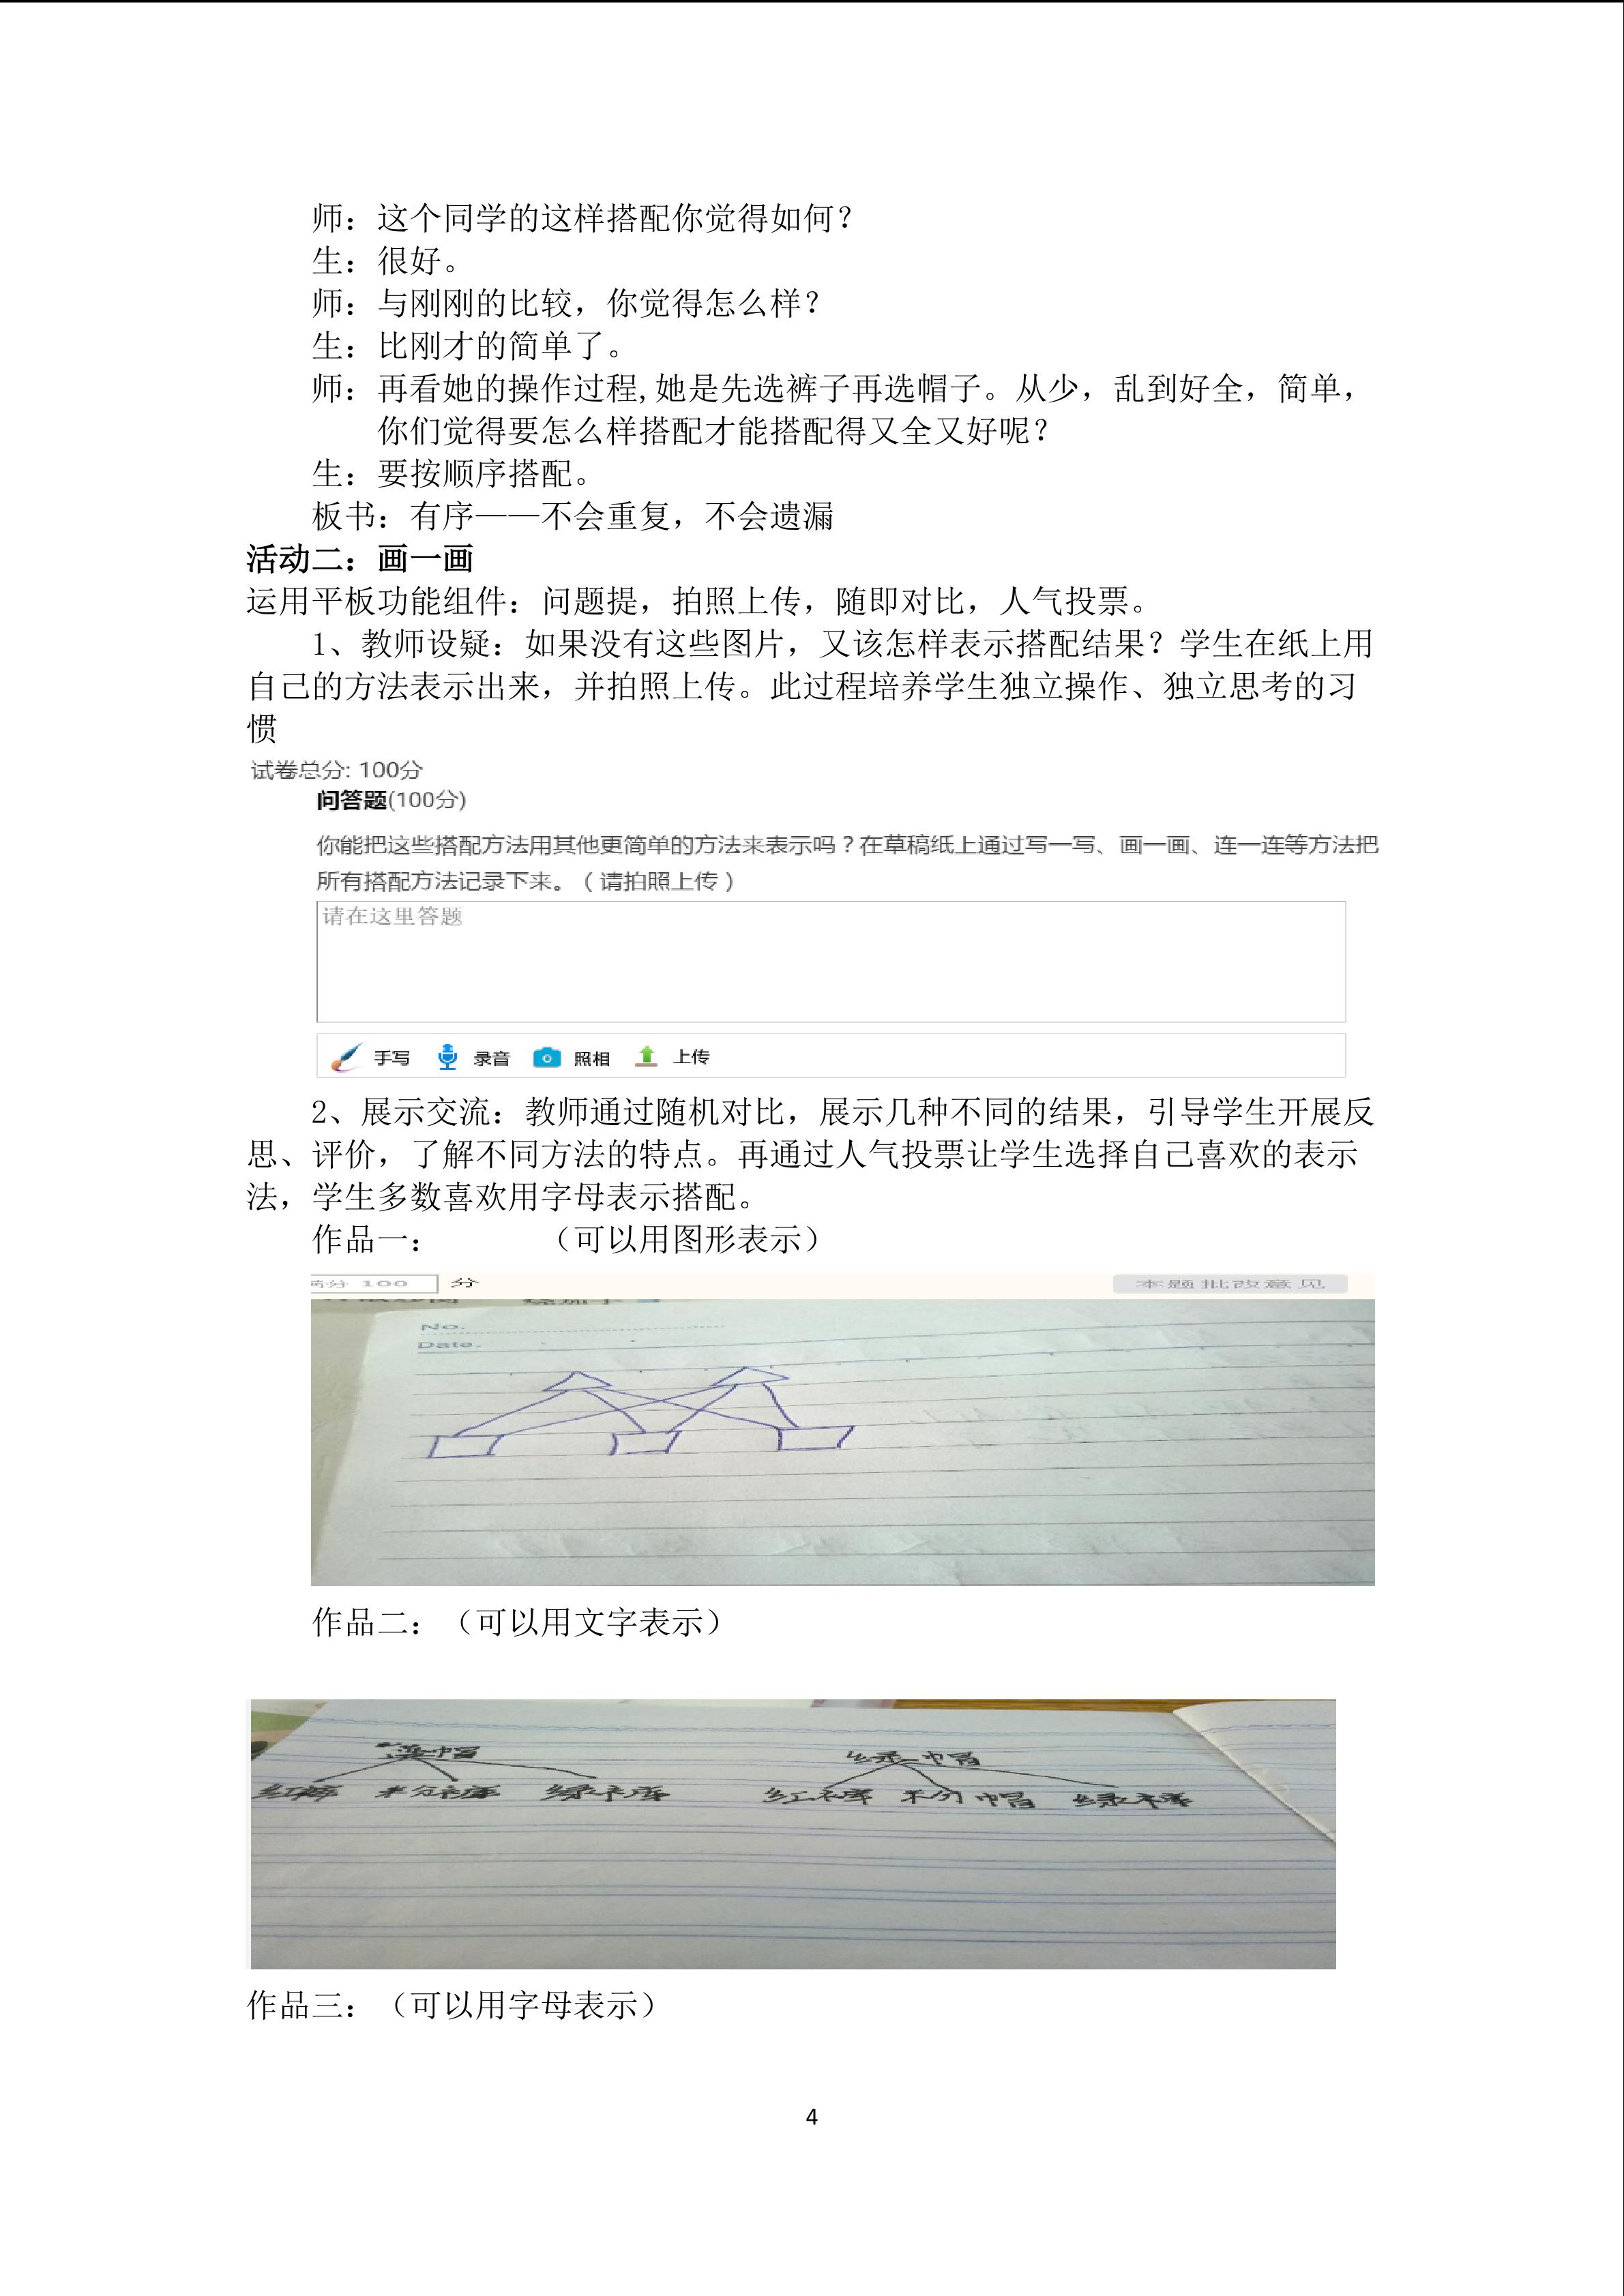 师：这个同学的这样搭配你觉得如何？
生：很好。
师：与刚刚的比较，你觉得怎么样？
生：比刚才的简单了。
师：再看她的操作过程,她是先选裤子再选帽子。从少，乱到好全，简单，
你们觉得要怎么样搭配才能搭配得又全又好呢？
生：要按顺序搭配。
板书：有序——不会重复，不会遗漏
活动二：画一画
运用平板功能组件：问题提，拍照上传，随即对比，人气投票。
1、教师设疑：如果没有这些图片，又该怎样表示搭配结果？学生在纸上用
自己的方法表示出来，并拍照上传。此过程培养学生独立操作、独立思考的习
惯
试卷总分: 100分
问答题(100分)
你能把这些搭配方法用其他更简单的方法来表示吗？在草稿纸上通过写一写、画一画、连一连等方法把
所有搭配方法记录下来。（请拍照上传）
请在这里答题
手写 录音 照相 上传
2、展示交流：教师通过随机对比，展示几种不同的结果，引导学生开展反
思、评价，了解不同方法的特点。再通过人气投票让学生选择自己喜欢的表示
法，学生多数喜欢用字母表示搭配。
作品一：（可以用图形表示）
分 100 分 本题批改意见
No.
Date.
作品二：（可以用文字表示）
帽 绿帽
红裤 粉裤 绿裤 红裤 粉帽 绿裤
作品三：（可以用字母表示）
4